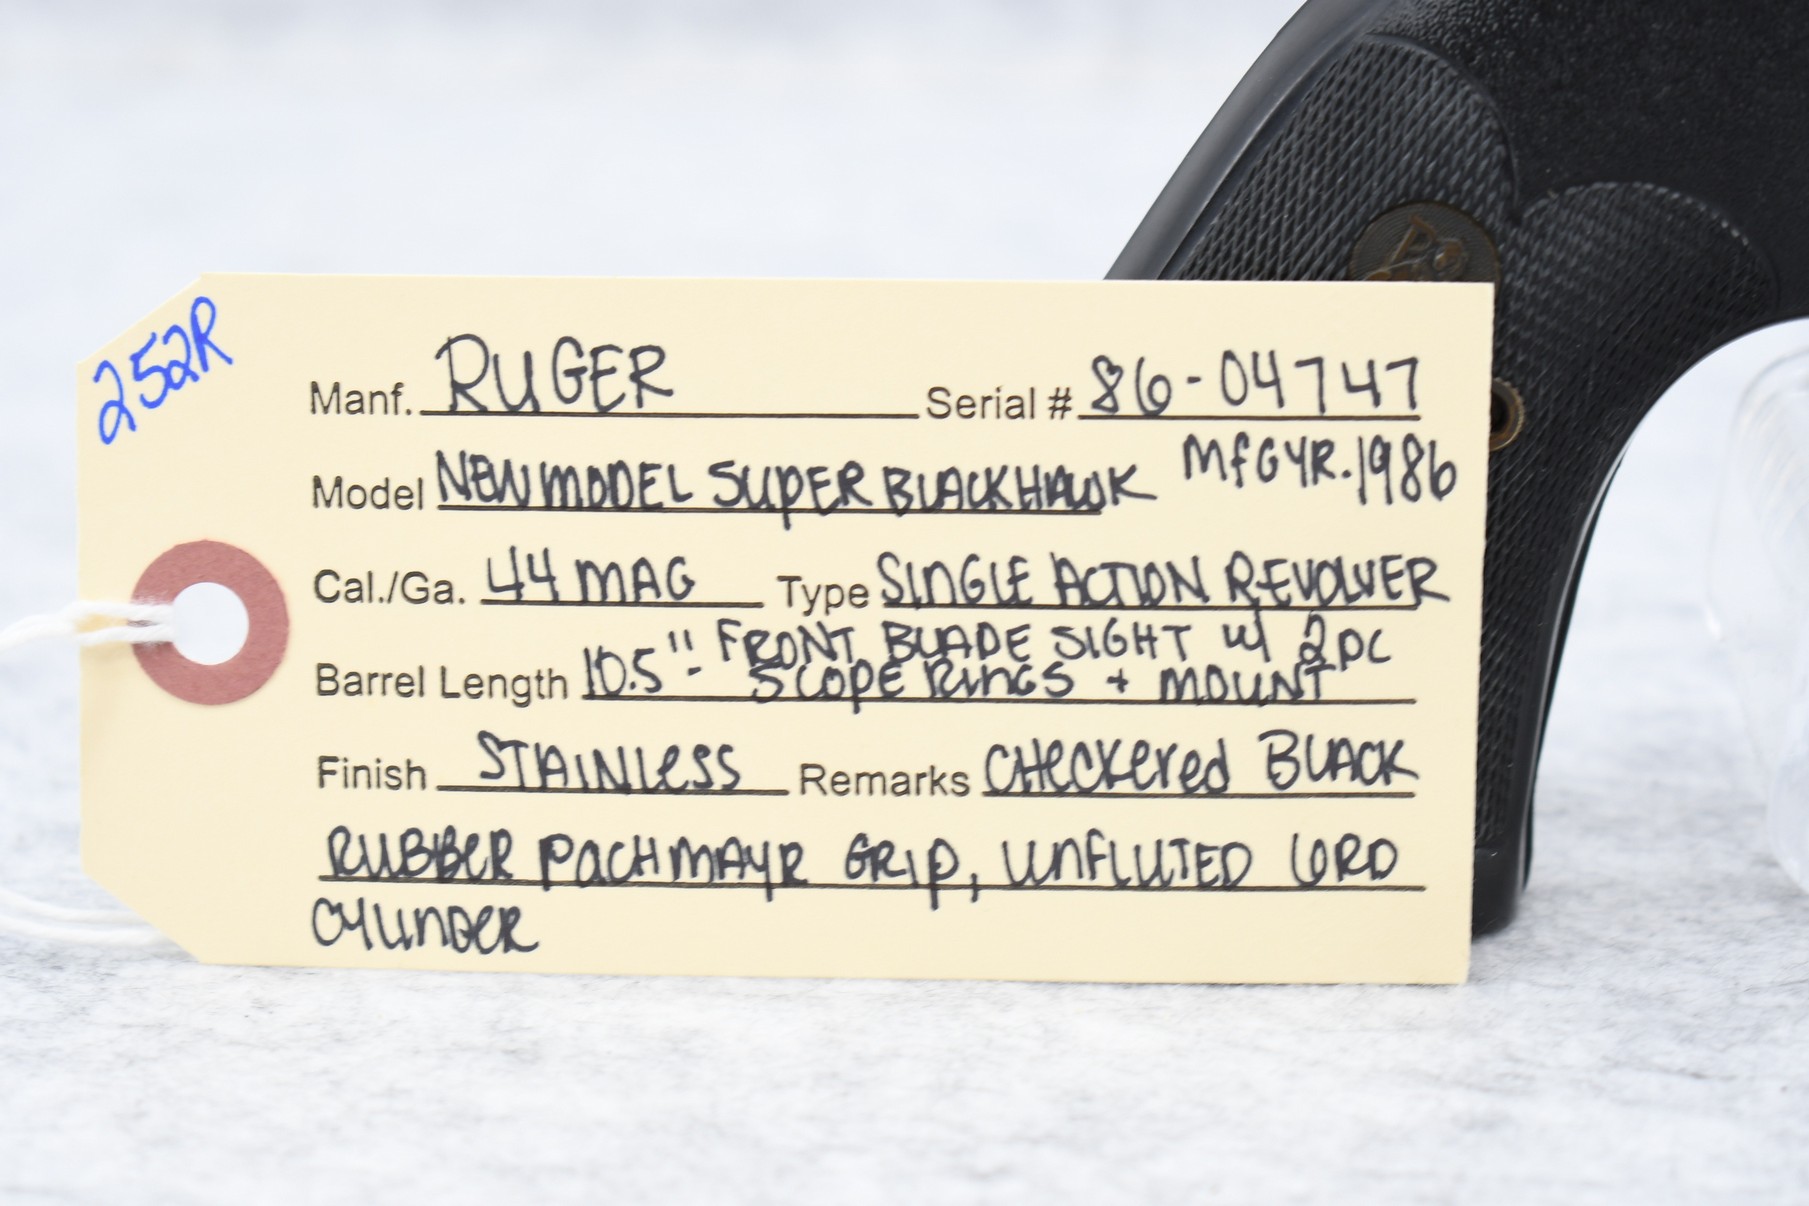 252R
Manf. RUGER Serial # 86-04747
Model NEW MODEL SUPER BLACKHAWK MFG YR. 1986
Cal./Ga. 44 MAG Type SINGLE ACTION REVOLVER
Barrel Length 10.5"- FRONT BLADE SIGHT w/ 2PC
SCOPE RINGS + MOUNT
Finish STAINLESS Remarks CHECKERED BLACK
RUBBER PACHMAYR GRIP, UNFLUTED 6RD
CYLINDER